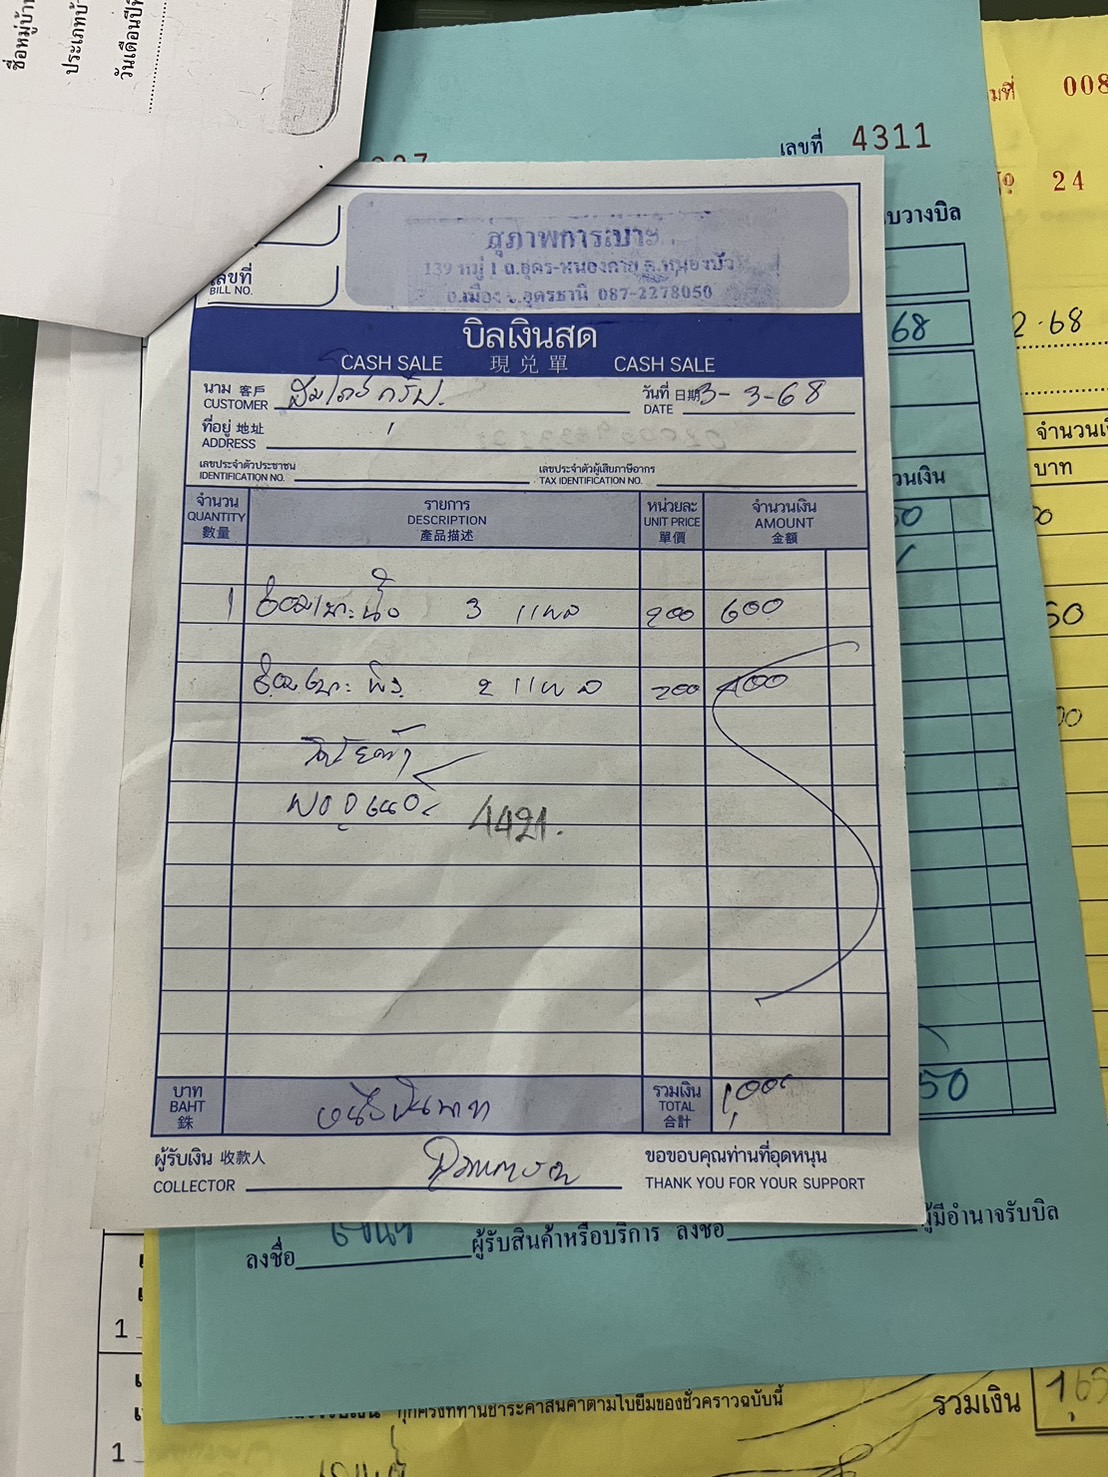 ชื่อหมู่บ้าน
วันเดือนปีที่
มที่ 008
เลขที่ 4311
№ 24
บวางบิล
สุภาพการเบาะ
139 หมู่ 1 ถ.อุดร-หนองคาย ต.หนองบัว
อ.เมือง จ.อุดรธานี 087-2278050
เลขที่
BILL NO.
บิลเงินสด
CASH SALE 現兌單 CASH SALE
68
2.68
นาม 客戶
CUSTOMER
วันที่ 日期 3-3-68
DATE
ที่อยู่ 地址
ADDRESS
จำนวนเงิ
บาท
เลขประจำตัวประชาชน
IDENTIFICATION NO.
เลขประจำตัวผู้เสียภาษีอากร
TAX IDENTIFICATION NO.
วนเงิน
จำนวน
QUANTITY
數量
รายการ
DESCRIPTION
產品描述
หน่วยละ
UNIT PRICE
單價
จำนวนเงิน
AMOUNT
金額
1 ซ่อมเบาะนั่ง 3 แผล 200 600
ซ่อมเบาะพิง 2 แผล 200 400
4421.
บาท
BAHT
銖
หนึ่งพันบาท
รวมเงิน
TOTAL
合計
1,000
50
ผู้รับเงิน 收款人
COLLECTOR
ขอขอบคุณท่านที่อุดหนุน
THANK YOU FOR YOUR SUPPORT
ลงชื่อ ผู้รับสินค้าหรือบริการ ลงชื่อ ผู้มีอำนาจรับบิล
1
ทุกครั้งที่ท่านชำระค่าสินค้าตามใบยืมของชั่วคราวฉบับนี้
รวมเงิน 1,65
1